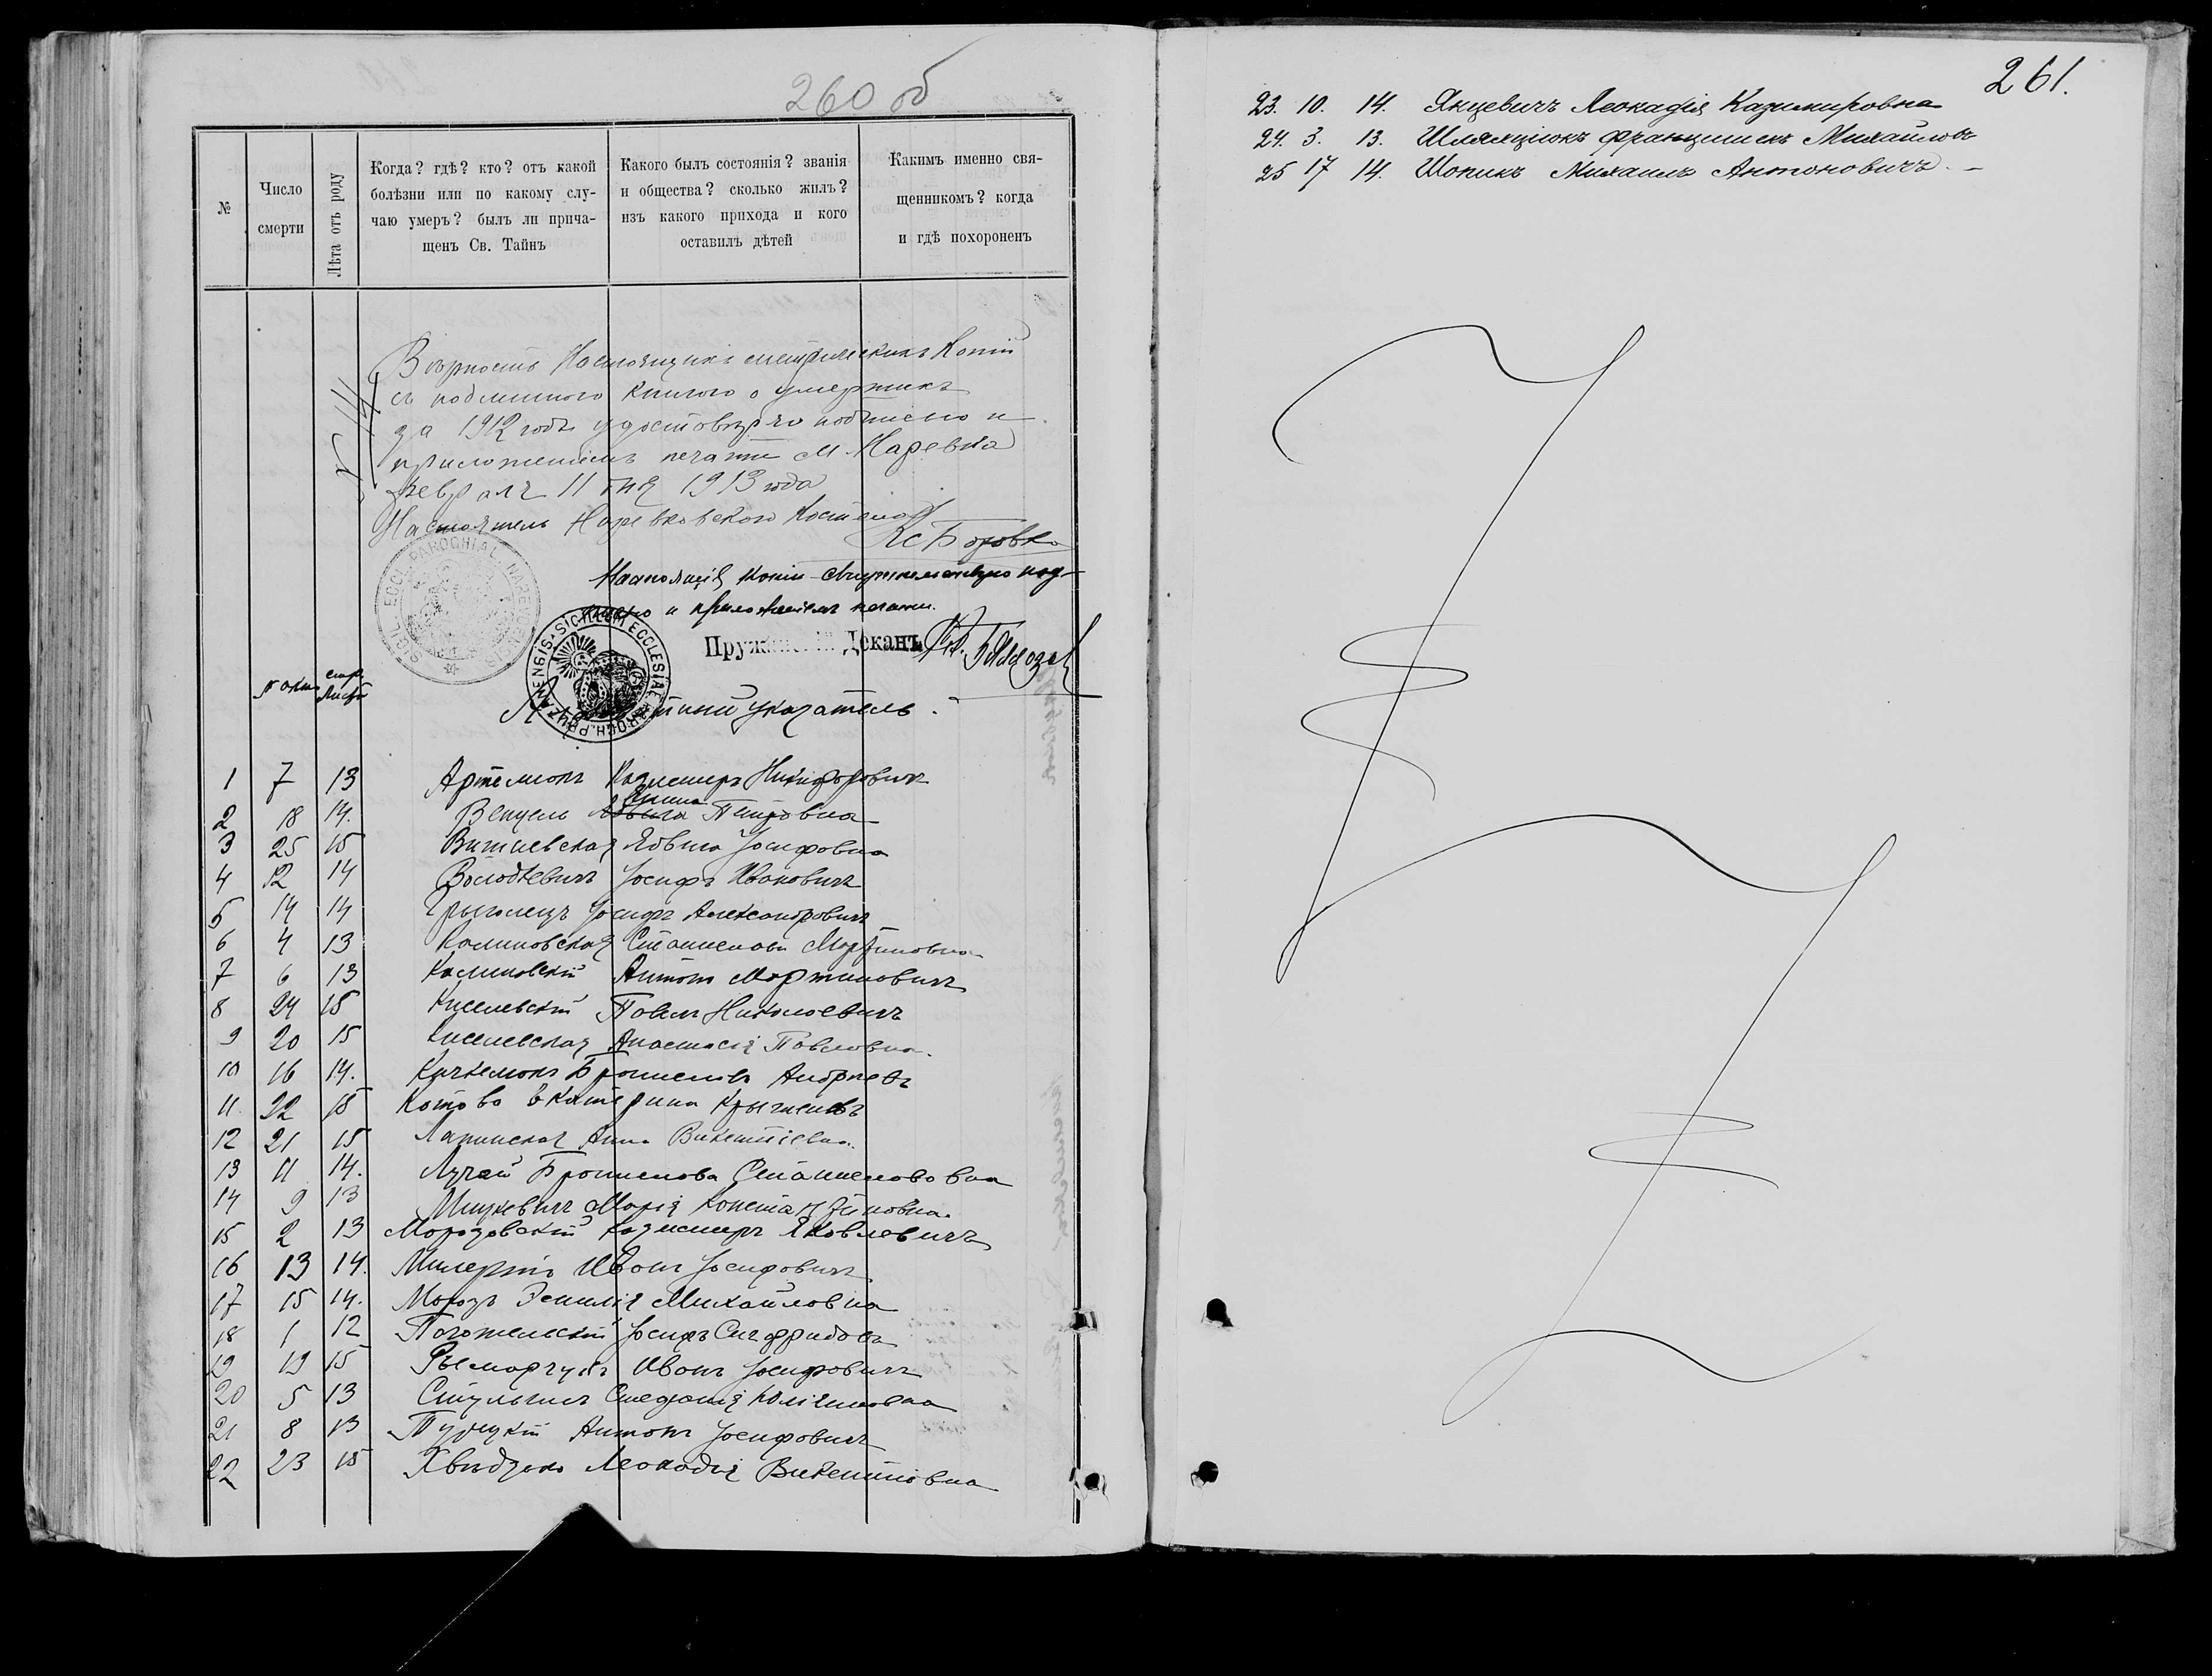 260 об
№
Число смерти
Лѣта отъ роду
Когда? гдѣ? кто? отъ какой
болѣзни или по какому слу-
чаю умеръ? былъ ли прича-
щенъ Св. Тайнъ
Какого былъ состоянія? званія
и общества? сколько жилъ?
изъ какого прихода и кого
оставилъ дѣтей
Какимъ именно свя-
щенникомъ? когда
и гдѣ похороненъ
Вѣрность Настоящихъ метрическихъ Копій
съ подлинного книгою о умершихъ
за 1912 годъ удостовѣряю подписью и
приложеніемъ печати М. Наревка
Февраля 11 дня 1913 года
Настоятель Наревковского Костела
Кс Боровко
SIGIL. ECCL. PAROCHIAL. NAREVCENSIS
Настоящія копіи свидѣтельствую под-
писью и приложеніемъ печати.
SIGILLUM ECCLESIAE PAROCH. PRUZANENSIS
Пружанскій Деканъ Кс.
№ акта стр. Листъ
указатель.
1 7 13 Артемюкъ Казимиръ Никифоровичъ
2 18 14. Венцель Анна Петровна
3 25 15 Витневская Ядвига Іосифовна
4 12 14 Володкевичъ Іосифъ Ивановичъ
5 14 14 Іосифъ Александровичъ
6 4 13 Калиновская Станислава Мартиновна
7 6 13 Калиновскій Антонъ Мартиновичъ
8 24 15 Киселевскій Павелъ Николаевичъ
9 20 15 Киселевская Анастасія Павловна.
10 16 14. Брониславъ Андреевъ
11. 22 15 Котово Екатерина
12 21 15 Лапинская Анна Викентіевна.
13 11 14. Лучай Бронислава Станиславовна
14 9 13 Мицкевичъ Марія Константиновна.
15 2 13 Морозовскій Казимиръ Яковлевичъ
16 13 14. Иванъ Іосифовичъ
17 15 14. Морозъ Эмилія Михайловна
18 1 12 Погожельскій Іосифъ Сигфридовъ
19 19 15 Рымарчукъ Иванъ Іосифовичъ
20 5 13 Стефанія
21 8 13 Турецкій Антонъ Іосифовичъ
22 23 15 Хвѣдзько Леокадія Викентіевна
261.
23. 10. 14. Янцевичъ Леокадія Казимировна
24. 3. 13. Шляхцюкъ Францишекъ Михайловъ
25 17 14. Шопикъ Михаилъ Антоновичъ. –